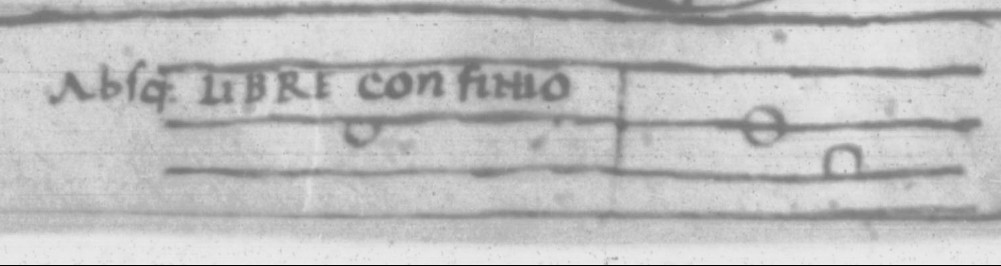 Absq: LIBRI confinio